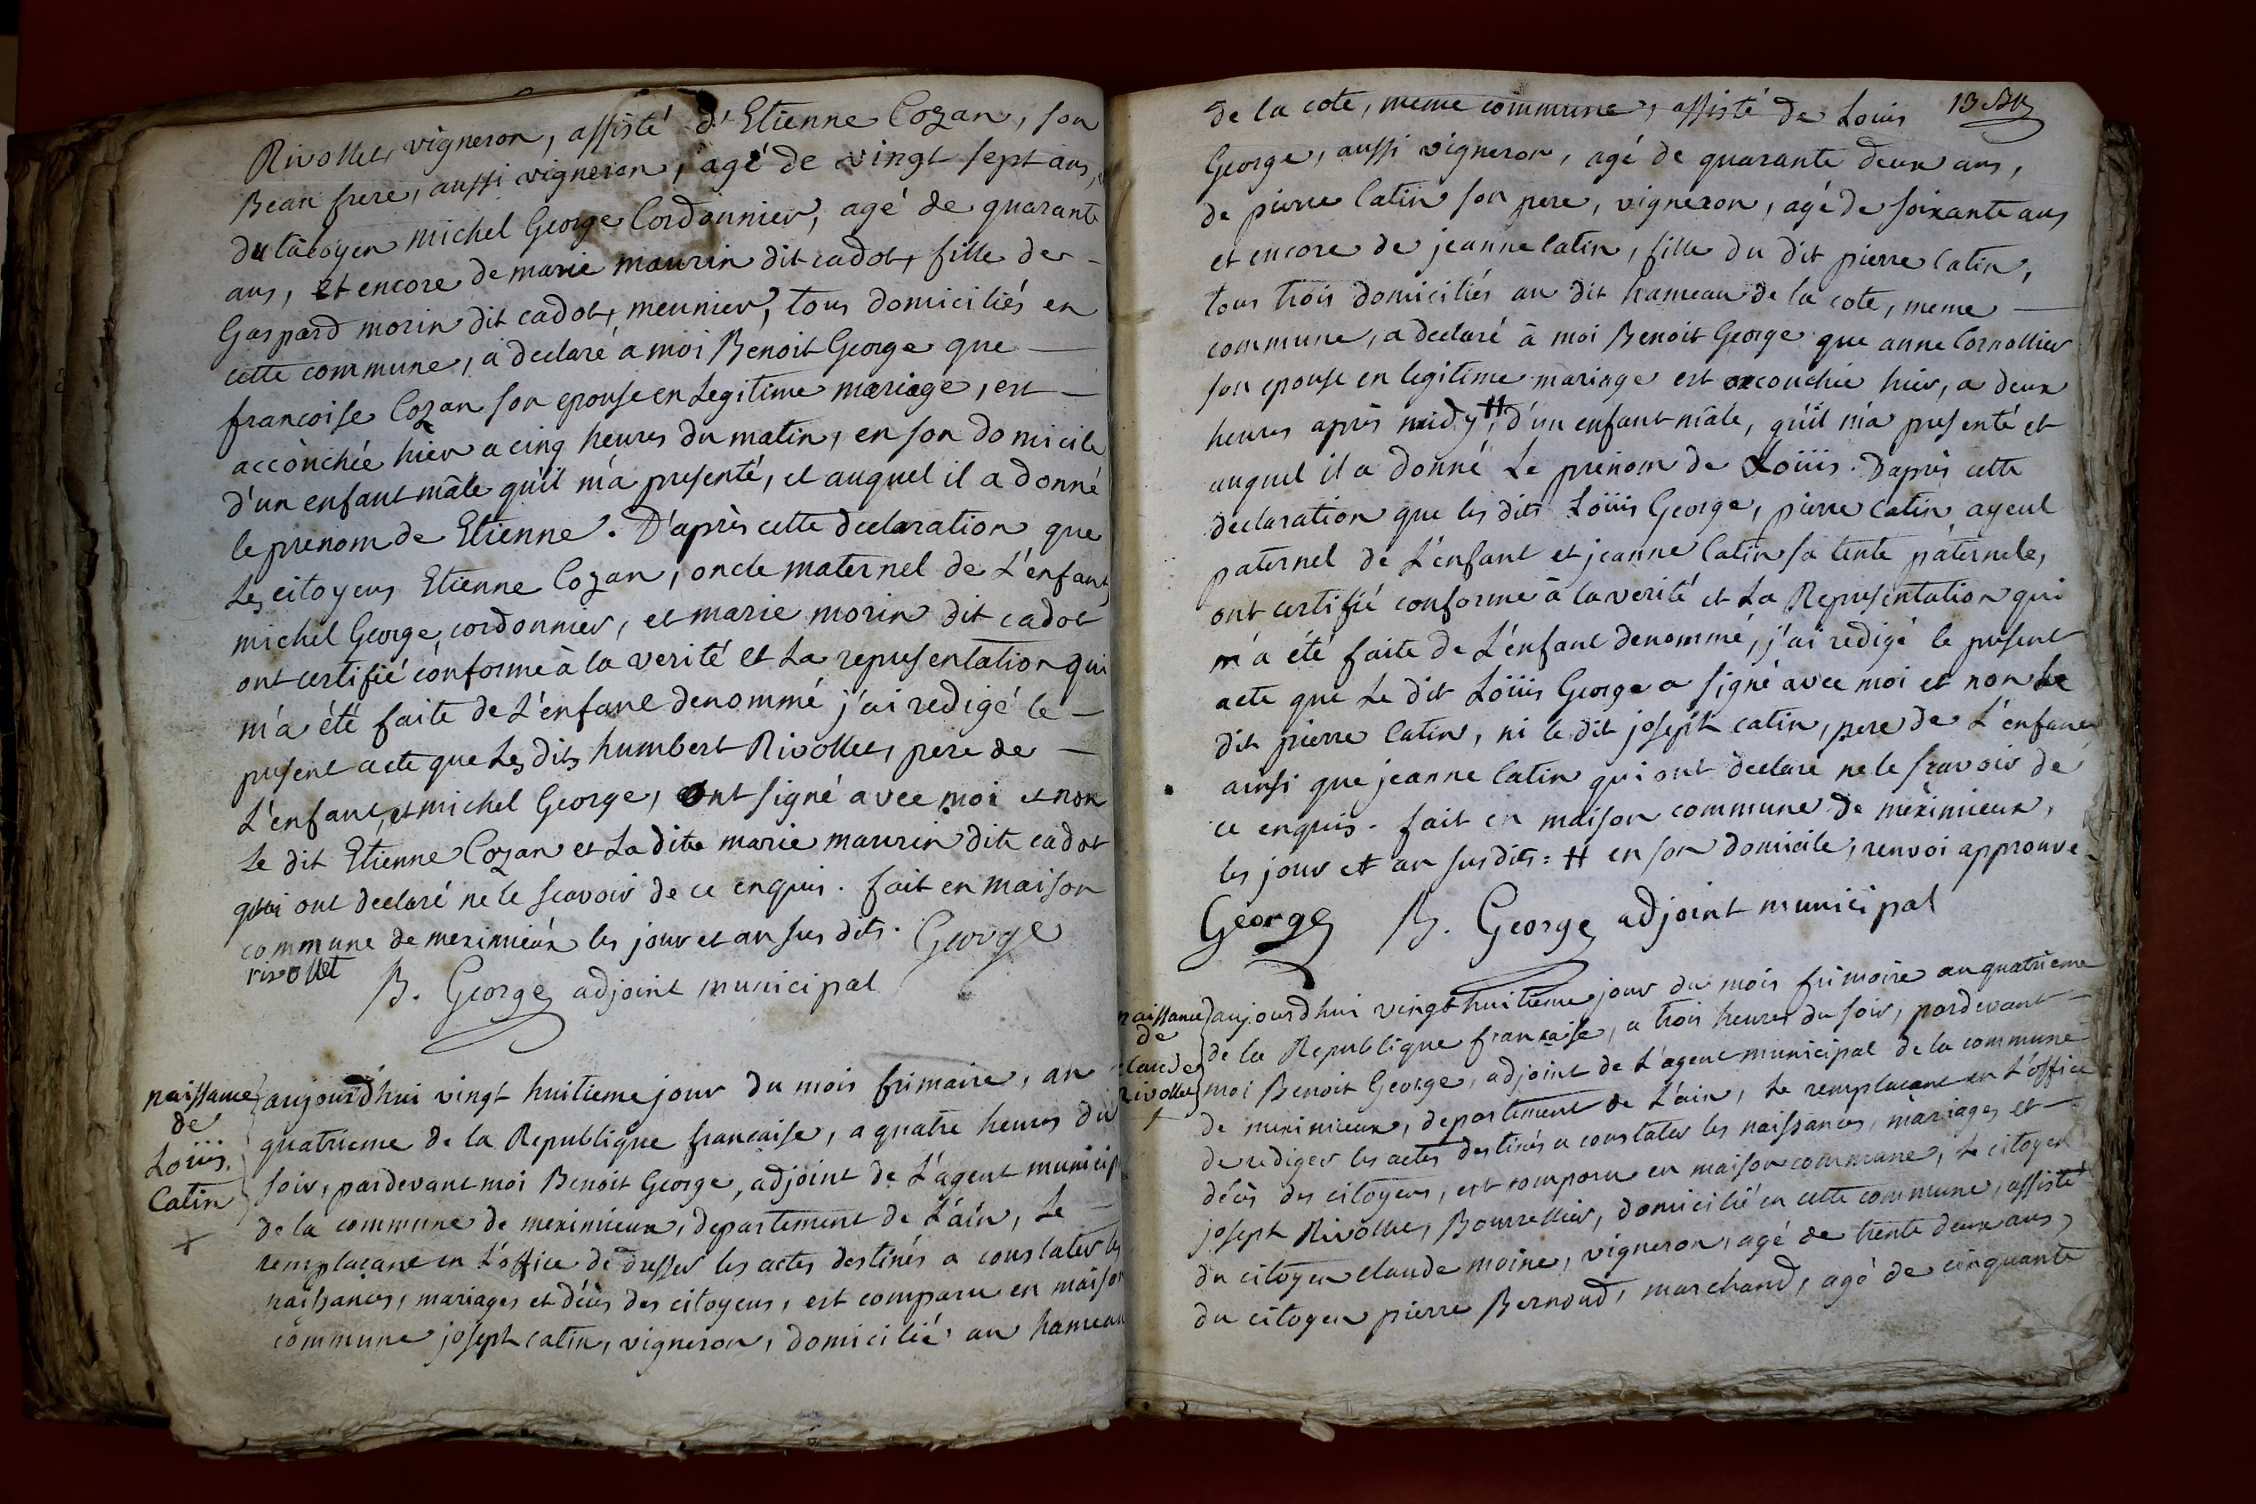 Rivollet, vigneron, assisté d'Etienne Cozan, son
Beau frere, aussi vigneron, agé de vingt sept ans,
du citoyen michel George Cordonnier, agé de quarante
ans, et encore de marie maurin dit cadot, fille de
Gaspard morin dit cadot, meunier, tous domiciliés en
cette commune, a declaré a moi Benoit George que
francoise Cozan son epouse en Legitime mariage, est
accouchée hier a cinq heures du matin, en son domicile
d'un enfant mâle qu'il m'a presenté, et auquel il a donné
le prenom de Etienne. D'après cette declaration que
Les citoyens Etienne Cozan, oncle maternel de L'enfant
michel George, cordonnier, et marie morin dit cadot
ont certifié conforme à la verité et La representation qui
m'a été faite de L'enfant denommé j'ai redigé le
present acte que Les dits humbert Rivollet, pere de
L'enfant, et michel George, ont signé avec moi et non
Le dit Etienne Cozan et La dite marie maurin dite cadot
qui ont declaré ne le scavoir de ce enquis. fait en maison
commune de meximieux les jour et an sus dits. George
rivollet
B. George adjoint municipal
naissance
de
Loüis
Catin
+
aujourd'hui vingt huitieme jour du mois frimaire, an
quatrieme de la Republique francaise, a quatre heures du
soir, pardevant moi Benoit George, adjoint de L'agent municip
de la commune de meximieux, departement de L'ain, Le
remplacant en L'office de dresser les actes destinés a constater les
naissances, mariages et décès des citoyens, est comparu en maison
commune joseph catin, vigneron, domicilié au hameau
13
de la cote, meme commune, assisté de Louis
George, aussi vigneron, agé de quarante deux ans,
de pierre Catin son pere, vigneron, agé de soixante ans
et encore de jeanne Catin, fille du dit pierre Catin,
tous trois domiciliés au dit hameau de la cote, meme
commune, a declaré à moi Benoit George que anne Cornollier
son epouse en legitime mariage est accouchée hier, a deux
heures après midy, # d'un enfant mâle, qu'il m'a presenté et
auquel il a donné Le prenom de Loüis. D'après cette
declaration que les dits Loüis George, pierre Catin ayeul
paternel de L'enfant et jeanne Catin sa tente paternele,
ont certifié conforme à la verité et La Representation qui
m'a été faite de L'enfant denommé, j'ai redigé le present
acte que Le dit Loüis George a signé avec moi et non Le
dit pierre Catin, ni le dit joseph catin, pere de L'enfant
ainsi que jeanne Catin qui ont declaré ne le scavoir de
ce enquis. fait en maison commune de meximieux,
les jour et an sus dits = # en son domicile, renvoi approuvé
George B. George adjoint municipal
naissance
de
claude
Rivollet
+
aujourd'hui vingt huitieme jour du mois frimaire an quatrieme
de la Republique francaise, a trois heures du soir, pardevant
moi Benoit George, adjoint de L'agent municipal de la commune
de meximieux, departement de L'ain, Le remplacant en L'office
de rediger les actes destinés a constater les naissances, mariages et
décès des citoyens, est comparu en maison commune, Le citoyen
joseph Rivollet, Bourrellier, domicilié en cette commune, assisté
du citoyen claude moine, vigneron, agé de trente deux ans,
du citoyen pierre Bernoud, marchand, agé de cinquante